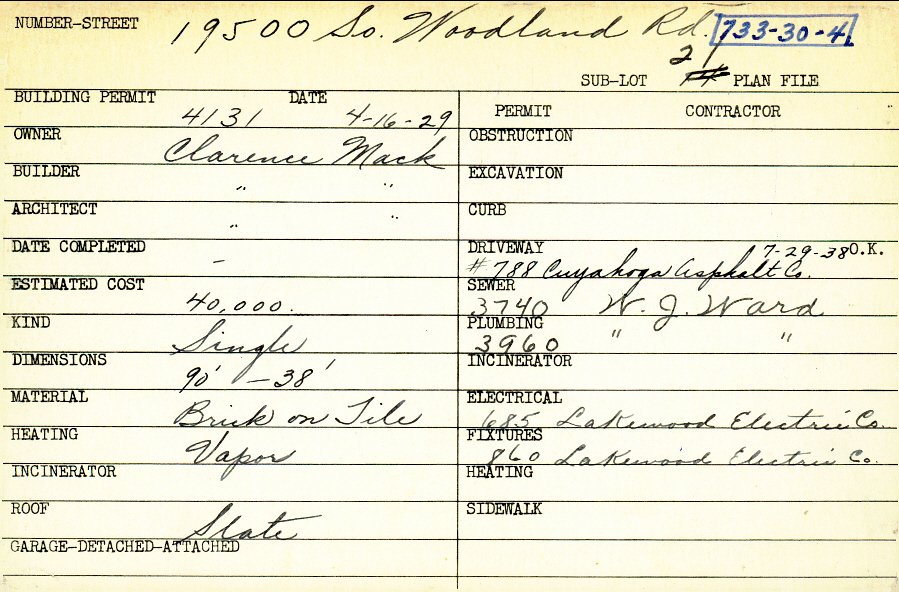 NUMBER-STREET 19500 So. Woodland Rd. 733-30-4
21
SUB-LOT PLAN FILE
BUILDING PERMIT DATE
4131 4-16-29
OWNER
Clarence Mack
BUILDER
" "
ARCHITECT
" "
DATE COMPLETED
-
ESTIMATED COST
40,000.
KIND
Single
DIMENSIONS
90' - 38'
MATERIAL
Brick on Tile
HEATING
Vapor
INCINERATOR
ROOF
Slate
GARAGE-DETACHED-ATTACHED
PERMIT CONTRACTOR
OBSTRUCTION
EXCAVATION
CURB
DRIVEWAY 7-29-38 O.K.
#788 Cuyahoga Asphalt Co.
SEWER
3740 W. J. Ward
PLUMBING
3960 " "
INCINERATOR
ELECTRICAL
685 Lakewood Electric Co.
FIXTURES
860 Lakewood Electric Co.
HEATING
SIDEWALK